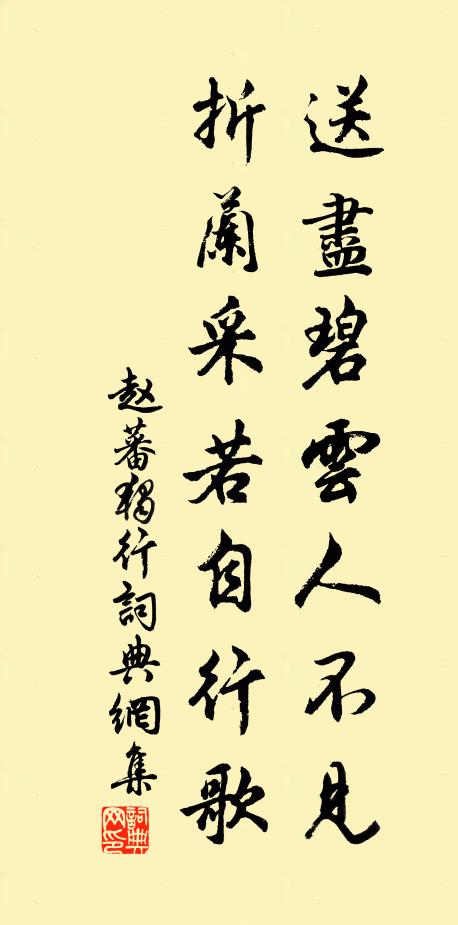 送盡碧雲人不見
折蘭采若自行歌
赵蕃獨行詞典網集
詞典网印